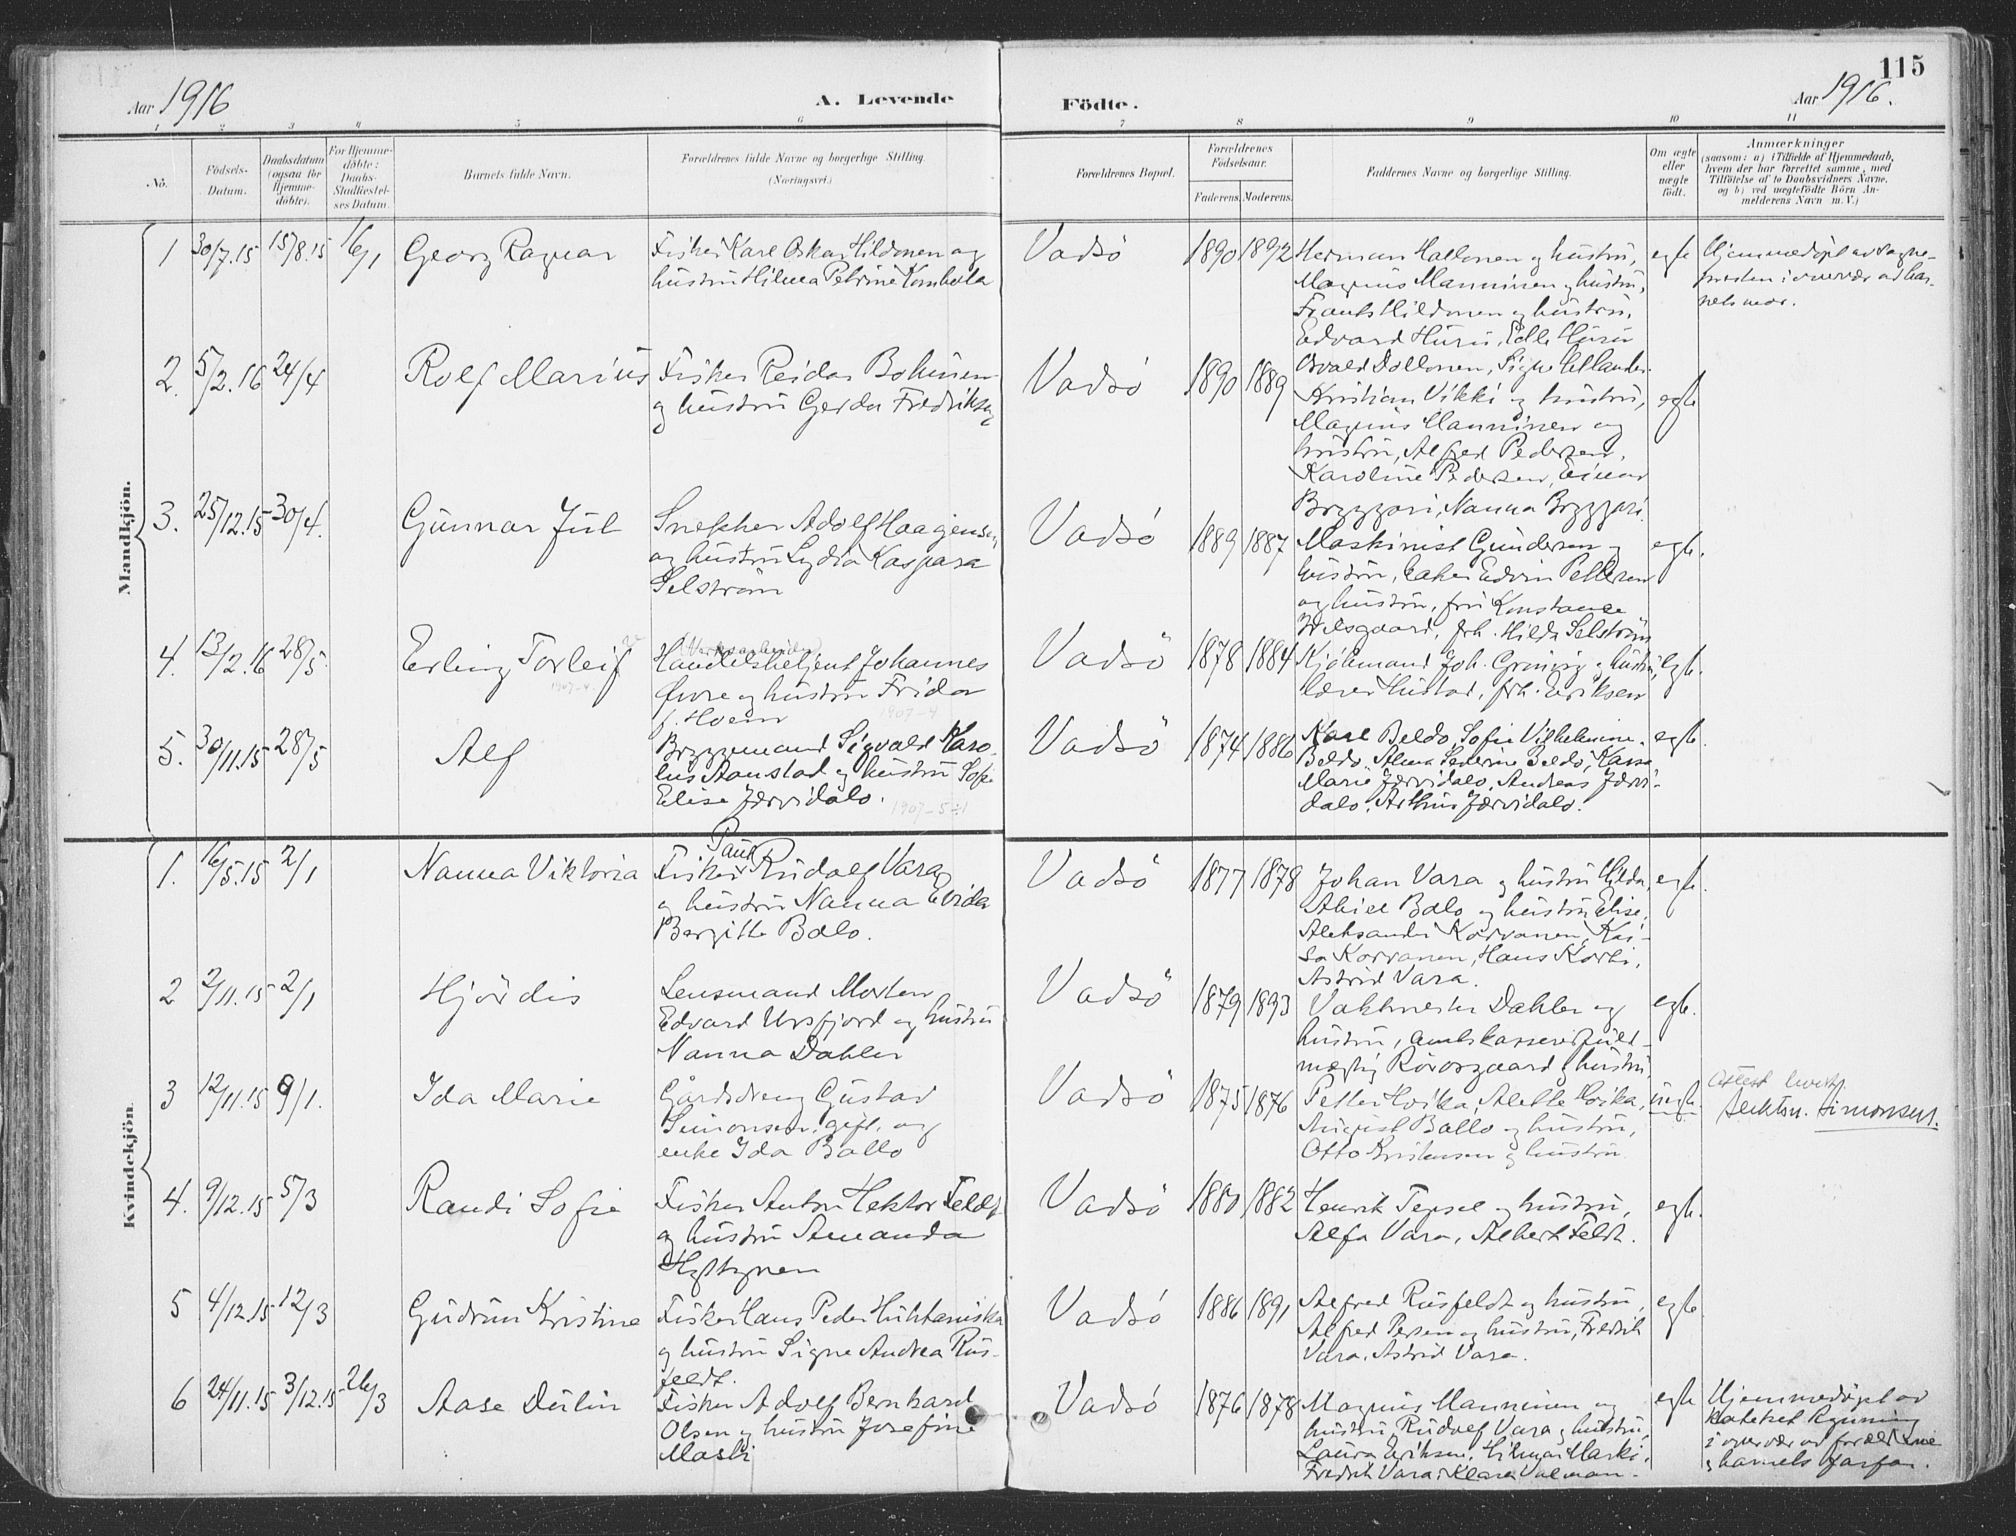 115
Aar 1916
A. Levende
Födte.
Aar 1916.
1 2 3 4 5 6 7 8 9 10 11
No.
Födsels-
Datum.
Daabsdatum
(ogsaa for
Hjemme-
döbte).
For Hjemme-
döbte:
Daabs-
Stadfæstel-
ses Datum.
Barnets fulde Navn.
Forældrenes fulde Navne og borgerlige Stilling.
(Næringsvei.)
Forældrenes Bopæl.
Forældrenes
Födselsaar.
Faderens. Moderens.
Faddernes Navne og borgerlige Stilling.
Om ægte
eller
uægte
födt.
Anmærkninger
(saasom: a) i Tilfælde af Hjemmedaab,
hvem der har forrettet samme, med
Tilföielse af to Daabsvidners Navne,
og b) ved uægtefödte Börn An-
melderens Navn m. V.)
Mandkjön.
1 30/7.15 15/8.15 16/1 Georg Ragnar
Fisker Karl Oskar Hildonen og
hustru Hilma Petrine
Vadsö 1890 1892
Herman Hallonen og hustru,
Magnus Manninen og hustru,
Frants Hildonen og hustru,
Edvard Huru,
egte
Hjemmedöpt av sogne-
presten i overvær av bar-
nets mor.
2. 5/2.16 24/4 Rolf Marius
Fisker Reidar Bohinen
og hustru Gerda Fredriksen
Vadsö 1890 1889
Osvald Dollonen, Signe
Kristian Vikki og hustru,
Magnus Manninen og
hustru, Alfred Pedersen,
Karoline Pedersen, Einar
Bryggari, Nanna Bryggari.
egte
3. 25/12.15 30/4. Gunnar Jul
Snekker Adolf Haagensen
og hustru Lydia Kaspara
Selström
Vadsö 1889 1887
Maskinist Gundersen og
hustru, Edvin Pettersen
og hustru, fru Konstance
frk. Hilda Selström
egte.
4. 13/2.16 28/5. Erling Torleif
Handelsbetjent Johannes
Övre og hustru Frida
f. Hoem
1907-4
Vadsö 1878 1884
Kjöbmand Joh. Grönvig og hustru,
lærer Hustad, frk. Eriksen
egte.
5. 30/11.15 28/5 Alf
Bryggemand Sigvald Karo-
lius Aanstad og hustru Sofie
Elise Jærvidalo.
Vadsö 1874 1886
Karl Beldo, Sofie Vilhelmine
Beldo, Alma Beldo, Kaisa
Marie Jærvidalo, Andreas Jærvi-
dalo, Arthur Jærvidalo.
egte.
Kvindekjön.
1. 16/5.15 2/1 Nanna Viktoria
Paul
Fisker Rudolf Vara
og hustru Nanna Evida
Bergitte Balo.
Vadsö 1877 1878
Johan Vara og hustru Hilda,
Balo og hustru Elise,
Aleksander Korvanen, Kai-
sa Korvanen, Hans
Astrid Vara.
egte.
2 2/11.15 2/1 Hjördis
Lensmand Morten
Edvard Ursfjord og hustru
Nanna Dahler
Vadsö 1879 1893
Vaktmester Dahler og
hustru, amtskassererfuld-
mægtig og hustru.
egte.
3 12/11.15 9/1. Ida Marie
Gårdsdreng Gustav
Simonsen, gift, og
enke Ida Ballo
Vadsö 1875 1876
Petter Hvika, Alette Hvika,
August Ballo og hustru,
Otto Kristensen og hustru.
uegte.
Simonsen.
4. 9/12.15 5/3 Randi Sofie
Fisker Anton Hektor Feldt
og hustru Amanda
Vadsö 1880 1882
Henrik og hustru,
Alfa Vara, Albert Feldt.
egte.
5 4/12.15 12/3 Gudrun Kristine
Fisker Hans Peder Huhtaniska
og hustru Signe Andrea Rus-
feldt.
Vadsö 1886 1891
Alfred Rusfeldt og hustru,
Alfred Persen og hustru, Fredrik
Vara, Astrid Vara.
egte
6 24/11.15 3/12.15 26/3 Aase Dulin
Fisker Adolf Bernhard
Olsen og hustru Josefine
Maski
Vadsö 1876 1878
Magnus Manninen og
hustru, Rudolf Vara og hustru,
Laura Eriksen, Hilmar Maski,
Fredrik Vara, Klara
egte
Hjemmedöpt av
kateket
i overvær av forældrene
og barnets farfar.